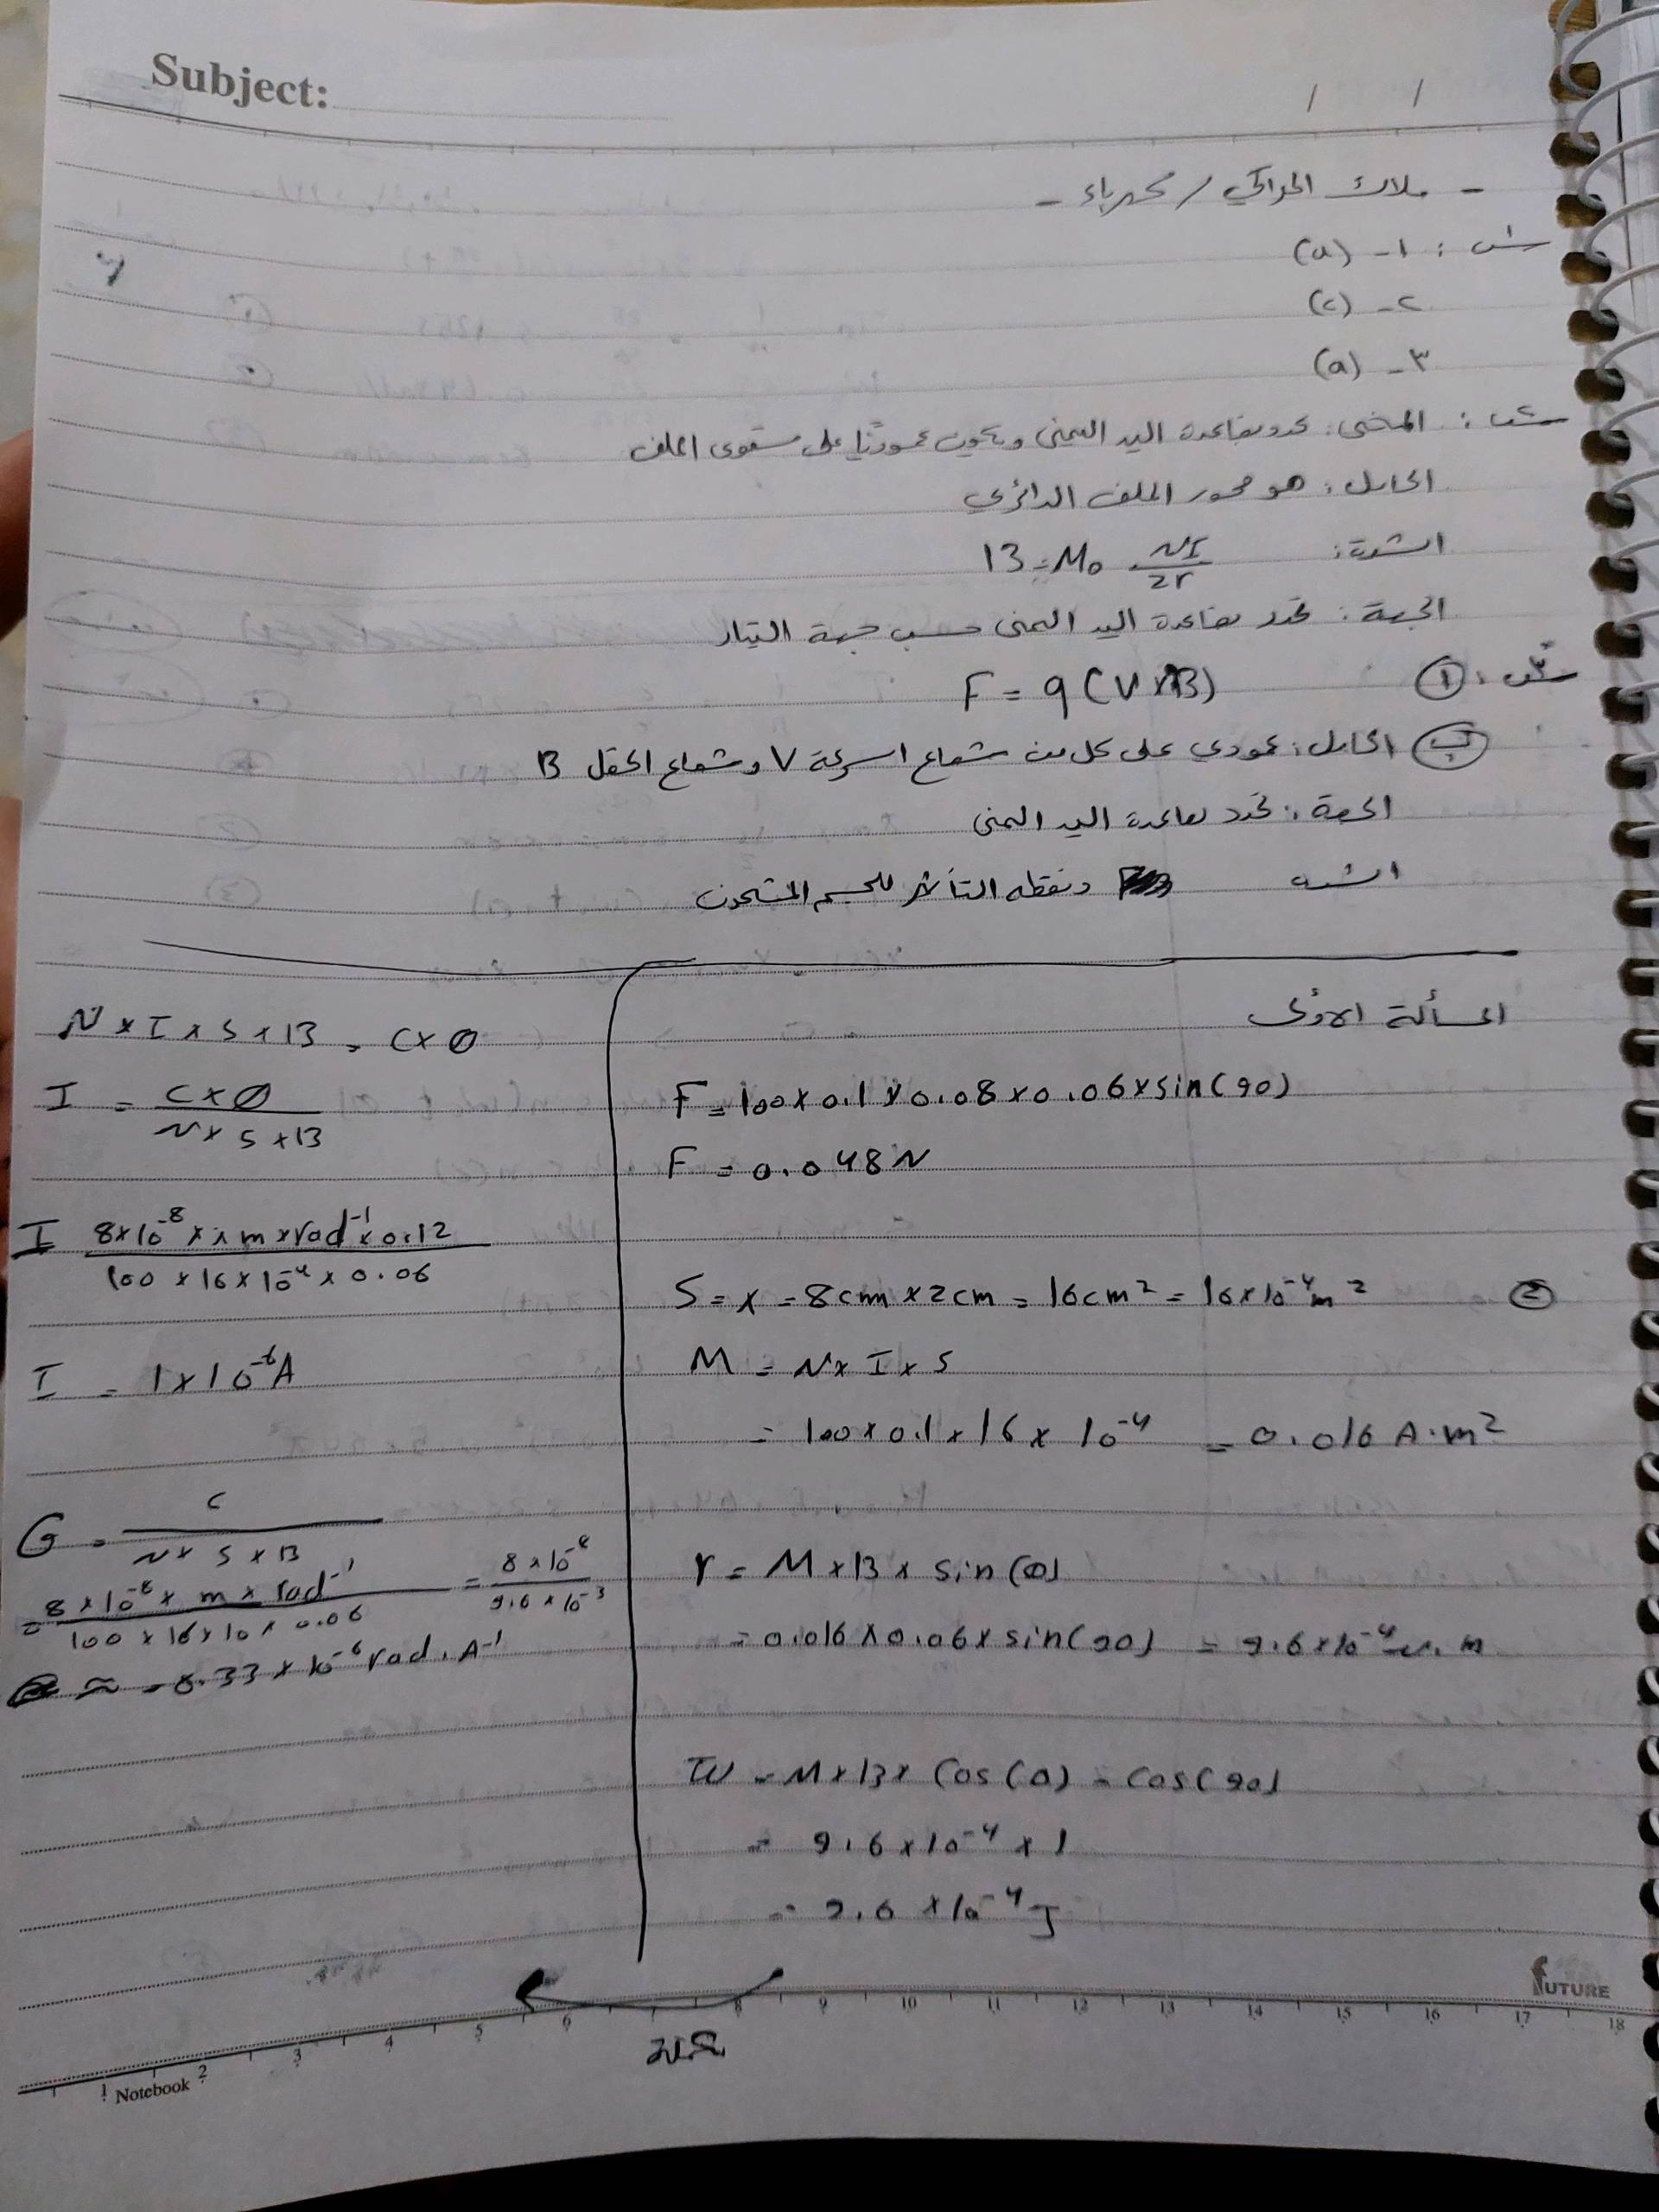 Subject:
/ /
- ملاك الحراكي / كهرباء -
س١ : ١- (a)
٢- (c)
٣- (a)
س٢ : المنحى : يحدد بقاعدة اليد اليمنى ويكون عموديًا على مستوى الملف
الحامل : هو محور الملف الدائري
الشدة : B = M₀ NI/2r
الجهة : تحدد بقاعدة اليد اليمنى حسب جهة التيار
س٣ : ① F = q (V x B)
ب الحامل : عمودي على كل من شعاع السرعة V وشعاع الحقل B
الجهة : تحدد بقاعدة اليد اليمنى
الشدة ونقطة التأثير للجسم المشحون
المسألة الأولى
F = 100 x 0.1 x 0.08 x 0.06 x sin(90)
F = 0.048 N
② S = x = 8cm x 2cm = 16cm² = 16x10⁻⁴m²
M = N x I x S
= 100 x 0.1 x 16 x 10⁻⁴ = 0.016 A.m²
r = M x B x sin(θ)
= 0.016 x 0.06 x sin(90) = 9.6x10⁻⁴ N.m
W = M x B x Cos(0) - Cos(90)
= 9.6 x 10⁻⁴ x 1
= 9.6 x 10⁻⁴ J
N x I x S x B = C x θ
I = C x θ / N x S x B
I 8x10⁻⁸ x x m x rad⁻¹ x 0.12 / 100 x 16 x 10⁻⁴ x 0.06
I = 1 x 10⁻⁶ A
G = C / N x S x B
= 8 x 10⁻⁸ x m x rad⁻¹ / 100 x 16 x 10 x 0.06 = 8 x 10⁻⁸ / 9.6 x 10⁻³
≈ = 8.33 x 10⁻⁶ rad . A⁻¹
FUTURE
1 2 3 4 5 6 8 9 10 11 12 13 14 15 16 17 18
Notebook